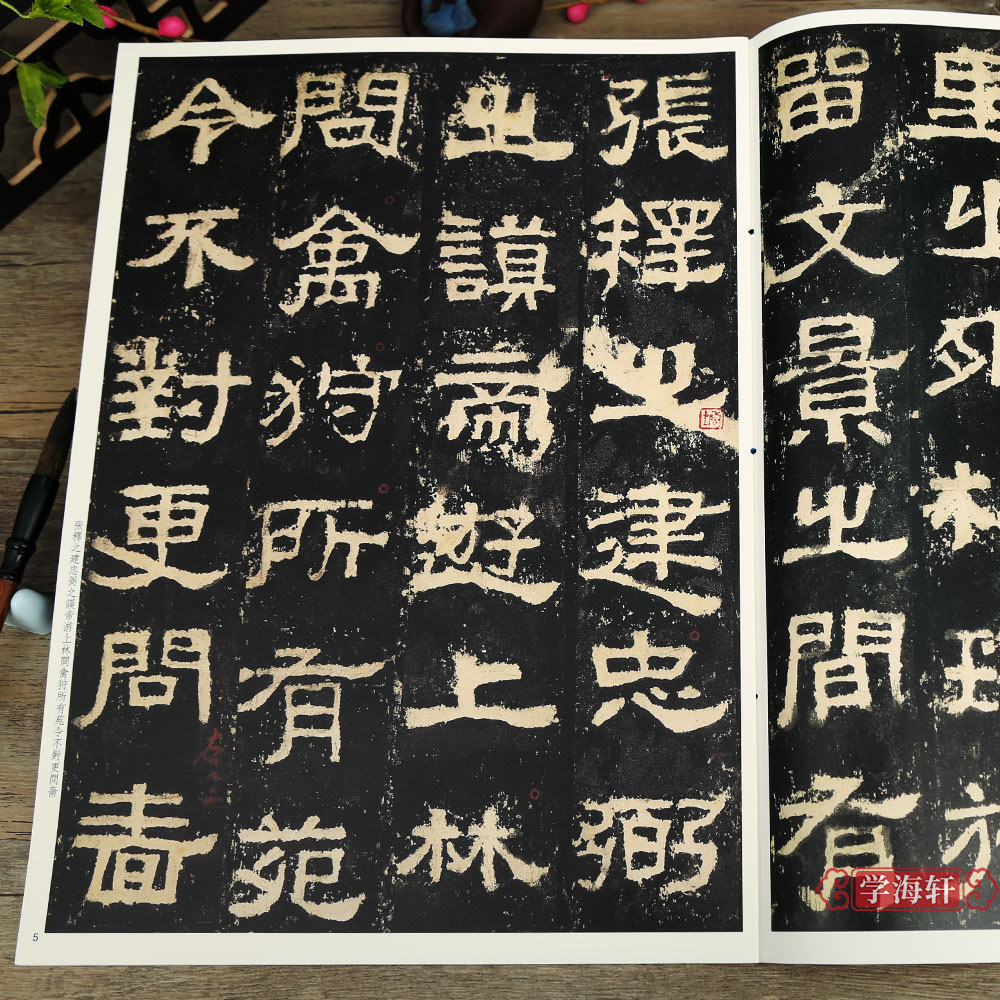 里之外析珪於
留文景之間有
張釋之建忠弼
之謨帝遊上林
問禽狩所有苑
令不對更問嗇
張釋之建忠弼之謨帝游上林問禽狩所有苑令不對更問嗇
5
学海轩